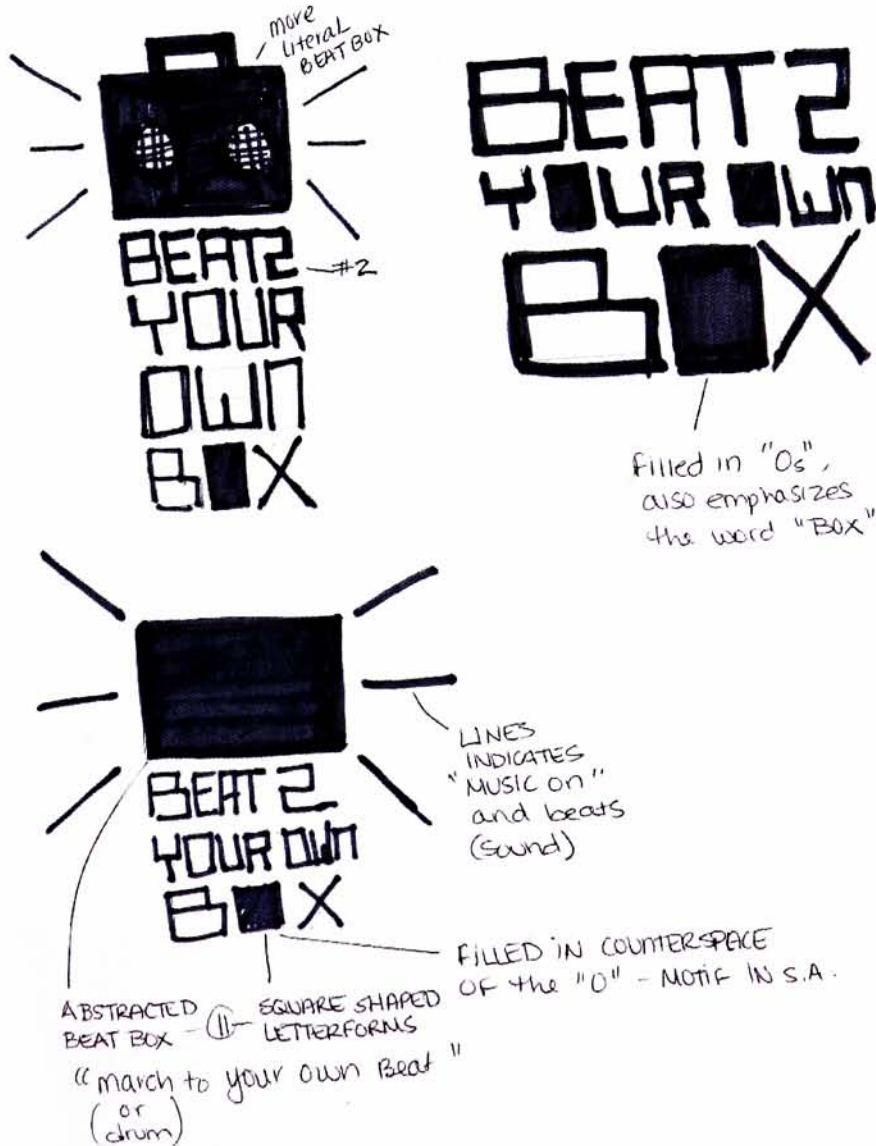 more
literal
BEAT BOX
BEAT2
#2
YOUR
OWN
BOX
BEAT 2
YOUR OWN
BOX
filled in "Os",
also emphasizes
the word "BOX"
LINES
INDICATES
"MUSIC on"
and beats
(sound)
BEAT 2
YOUR OWN
BOX
FILLED IN COUNTERSPACE
OF the "O" - MOTIF IN S.A.
ABSTRACTED
BEAT BOX - 11 - SQUARE SHAPED
LETTERFORMS
"march to your own Beat"
(or
drum)